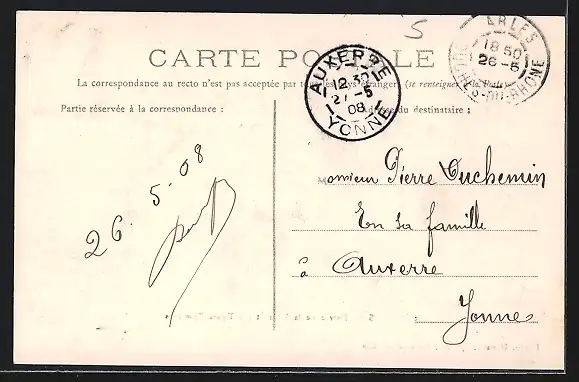 5
CARTE POSTALE
La correspondance au recto n'est pas acceptée par tous les pays étrangers (se renseigner à la Poste)
Partie réservée à la correspondance :
Adresse du destinataire :
AUXERRE
12 30
27 -5
08
YONNE
ARLES
18 50
26 -5
BOUCHES-DU-RHONE
26. 5. 08
Monsieur Pierre Duchemin
En sa famille
à Auxerre
Yonne